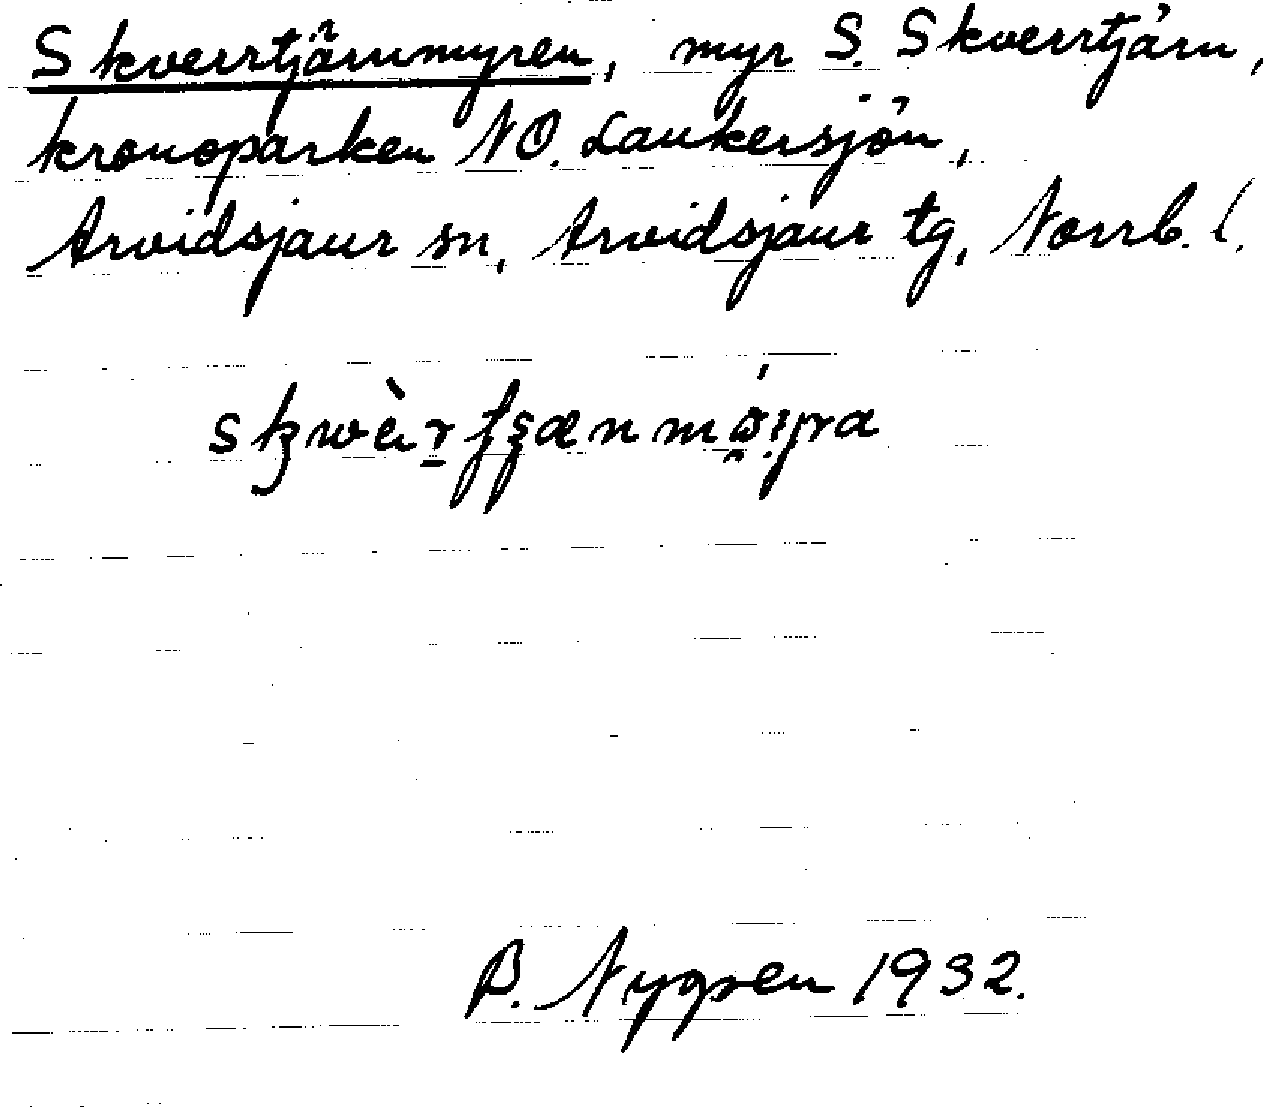 Skverrtjärnmyren, myr S. Skverrtjärn,
kronoparken NO. Laukersjön,
Arvidsjaur sn, Arvidsjaur tg, Norrb. l.
B. Nygren 1932.